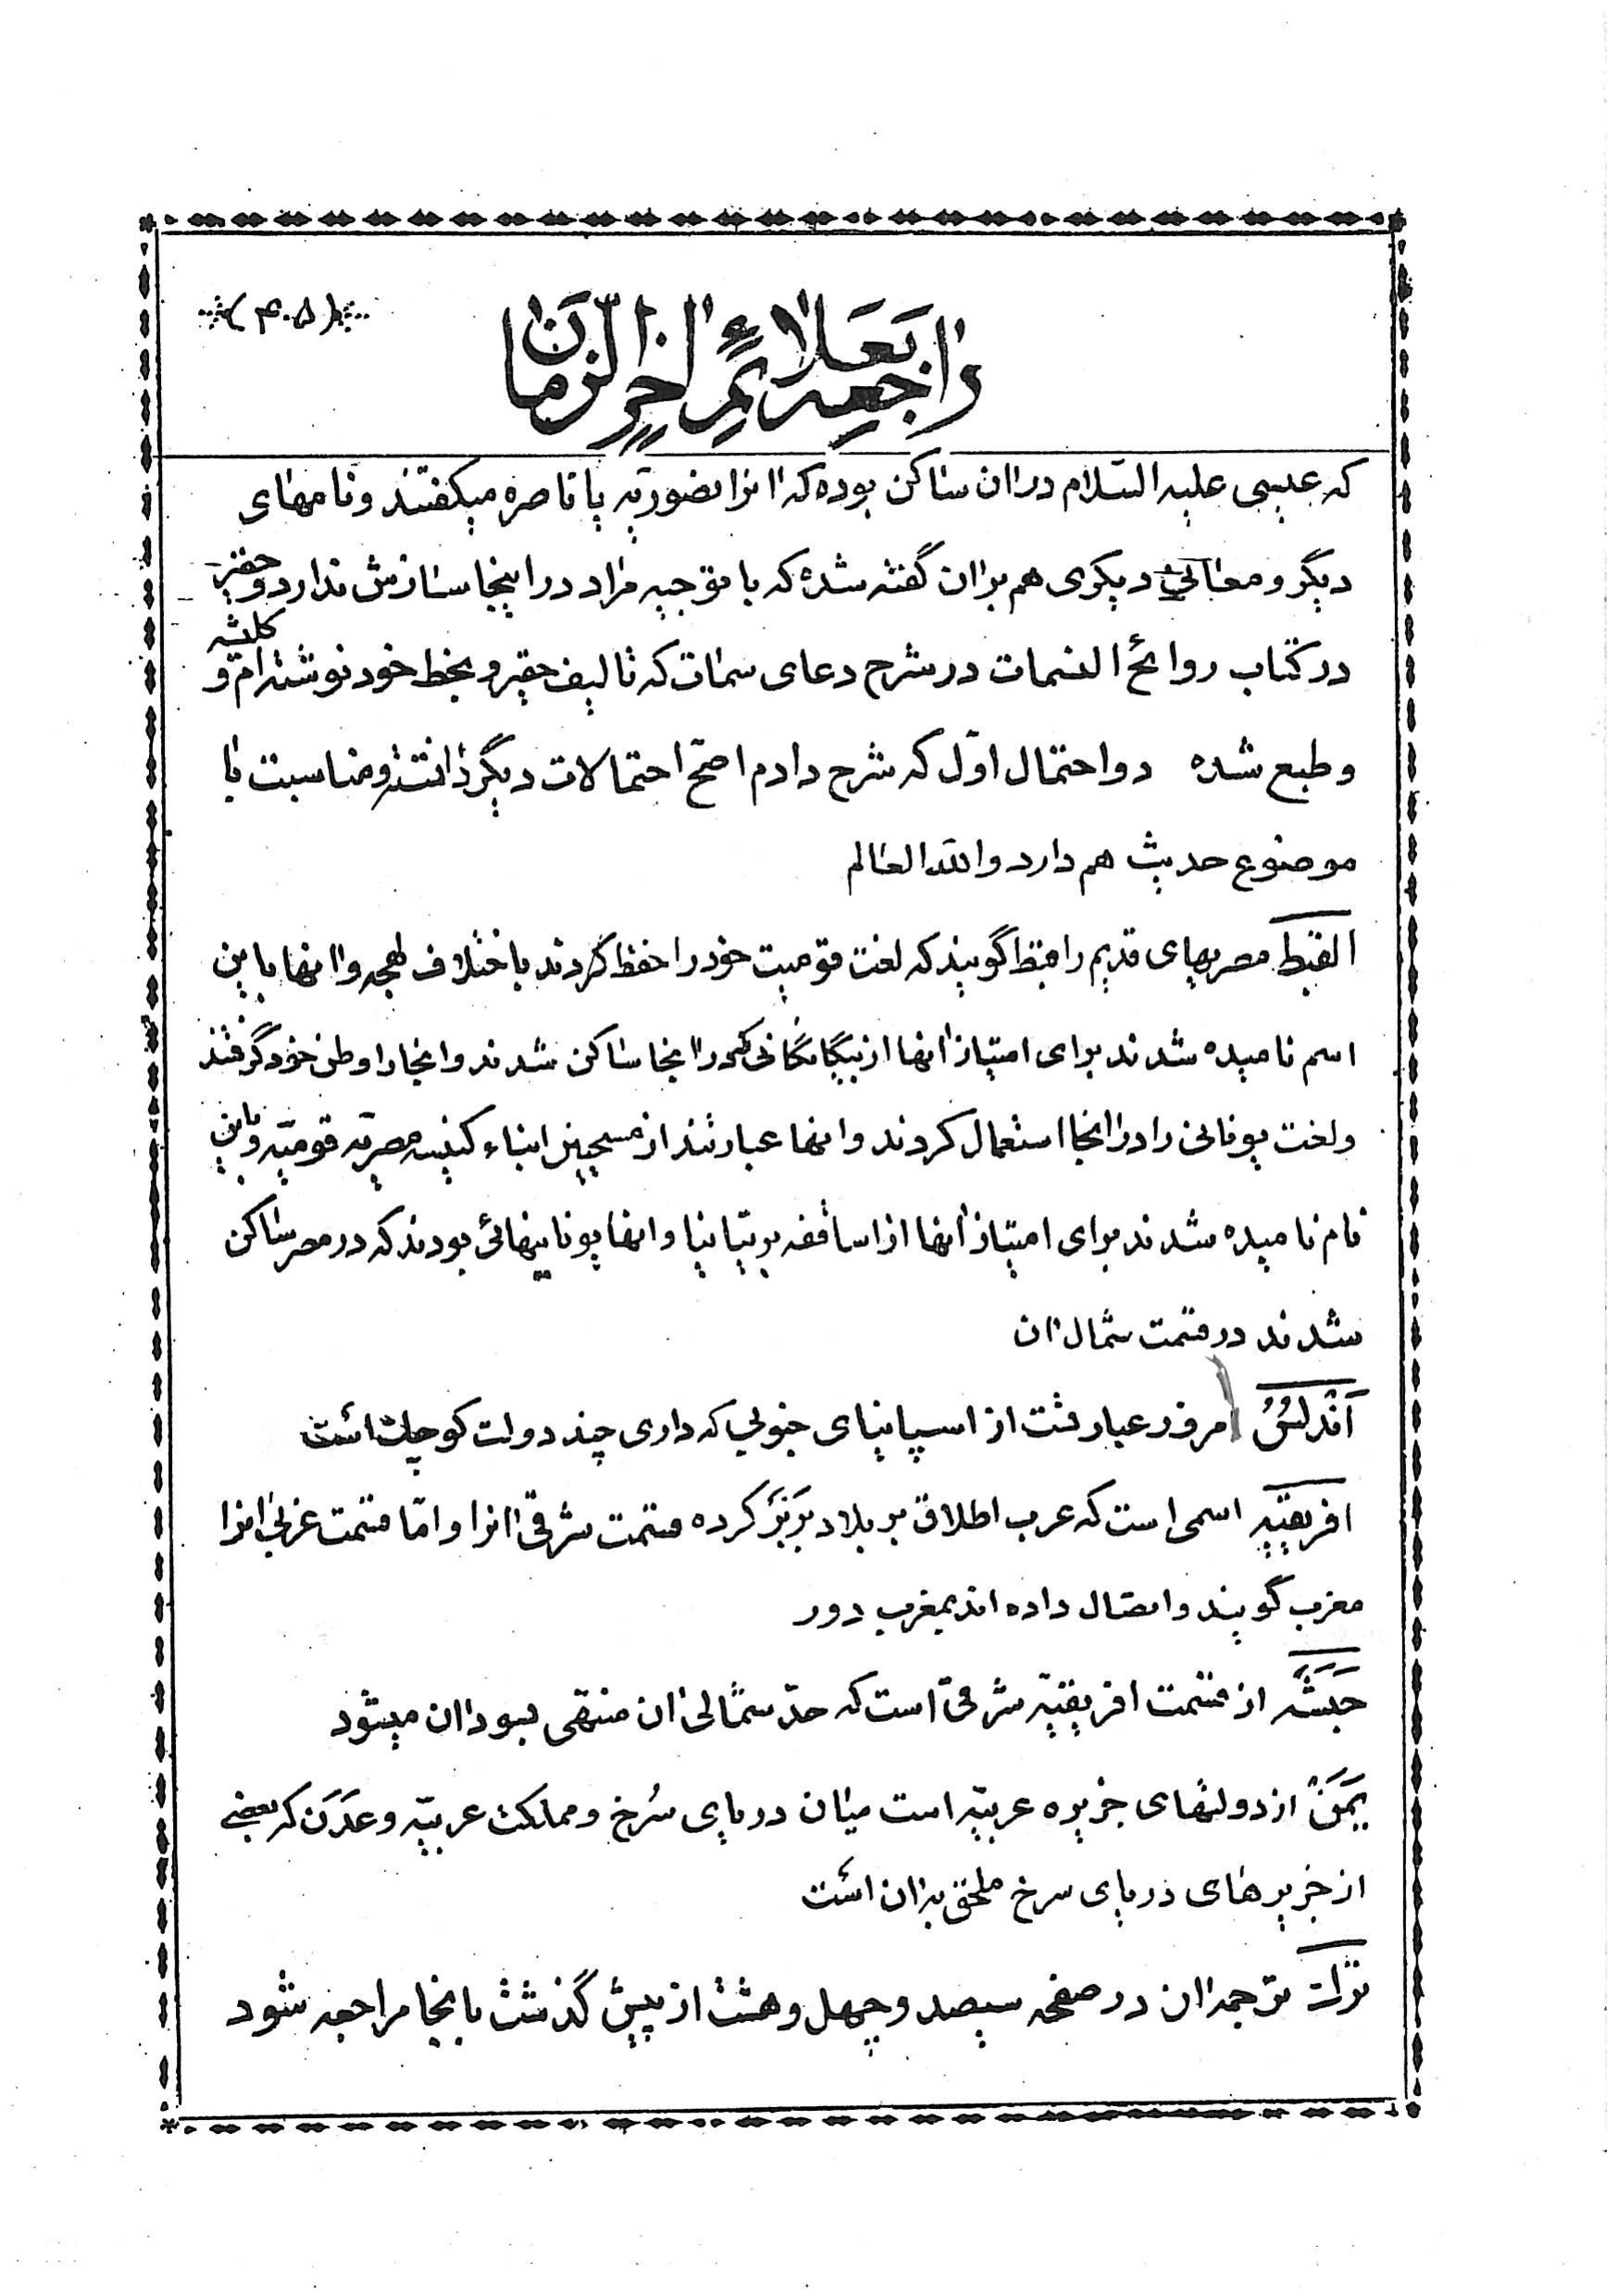 (۴۰۵)
راجعه بعلائم آخر الزمان
که عیسی علیه السّلام در ان ساکن بوده که انرا نضوریّه یا ناصره میگفتند و نامهای
دیگر و معانی دیگری هم بران گفته شده که با توجیه مراد در اینجا سازش ندارد و حقیر
در کتاب روائح النسمات در شرح دعای سمات که تالیف حقیر و بخط خود نوشته‌ام و کلیشه
و طبع شده دو احتمال اوّل که شرح دادم اصحّ احتمالات دیگر دانسته و مناسبت با
موضوع حدیث هم دارد والله العالم
القبط مصریهای قدیم را قبط گویند که لغت قومیت خود را حفظ کردند باختلاف لهجه و انها باین
اسم نامیده شدند برای امتیاز انها از بیگانگانی که در انجا ساکن شدند و انجا را وطن خود گرفتند
ولغت یونانی را در انجا استعمال کردند و انها عبارتند از مسیحیین ابناء کنیسه مصریّه قومیّه و باین
نام نامیده شدند برای امتیاز انها از اساقفه بریتانیا و انها یونانیهائی بودند که در مصر ساکن
شدند در قسمت شمال ان
اَندلسُ امروز عبارتست از اسپانیای جنوبی که داری چند دولت کوچک است
افریقیّه اسمی است که عرب اطلاق بر بلاد بَربَر کرده قسمت شرقیّ انرا و امّا قسمت غربی انرا
مغرب گویند و اتصال داده اند بمغرب دور
حَبَشَه از قسمت افریقیّه شرقیّ است که حدّ شمالی ان منتهی بسودان میشود
یَمَن از دولتهای جزیره عربیّه است میان دریای سُرخ و مملکت عربیّه و عَدَن که بعضی
از جزیرهای دریای سرخ ملحق بران است
ترک ترجمه ان در صفحه سیصد و چهل و هشت از پیش گذشت بانجا مراجعه شود